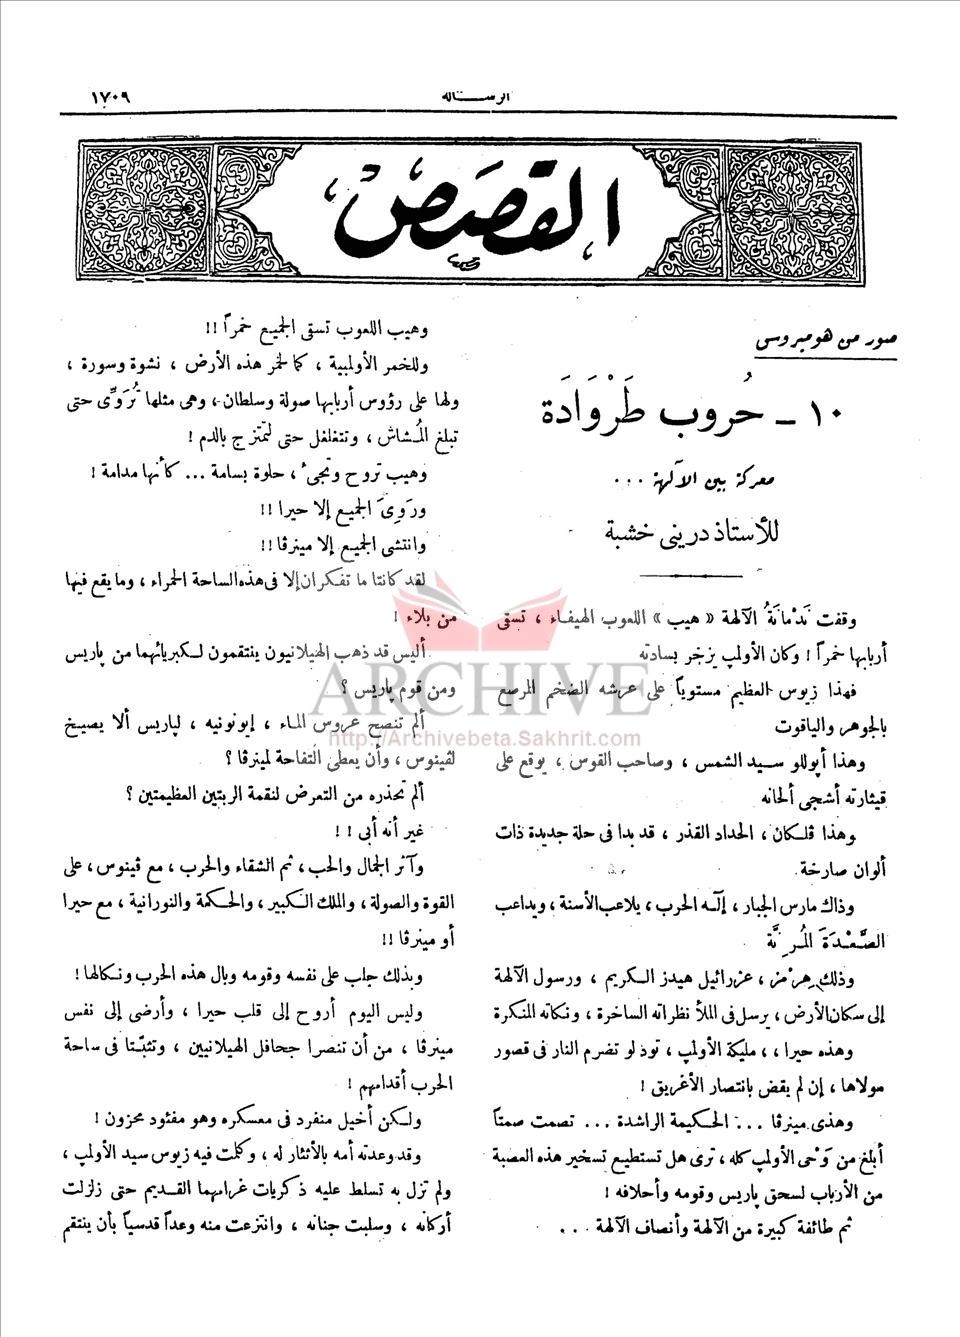 ١٧٠٩
الرسالة
القصص
صور من هوميروس
١٠ - حُروب طَرْوَادَة
معركة بين الآلهة ...
للأستاذ دريني خشبة
وقفت نَدْمانَةُ الآلهة « هيب » اللعوب الهيفاء ، تسقى
أربابها خمراً ! وكان الأولمب يزخر بسادته
فهذا زيوس العظيم مستوياً على عرشه الضخم المرصع
بالجوهر والياقوت
وهذا أپوللو سيد الشمس ، وصاحب القوس ، يوقع على
قيثارته أشجى ألحانه
وهذا ڤلكان ، الحداد القذر ، قد بدا فى حلة جديدة ذات
ألوان صارخة
وذاك مارس الجبار ، إله الحرب ، يلاعب الأسنة ، ويداعب
الصَّعْدَةَ المُرِنَّة
وذلك هرمز ، عزرائيل هيدز الكريم ، ورسول الآلهة
إلى سكان الأرض ، يرسل فى الملأ نظراته الساخرة ، ونكاته المنكرة
وهذه حيرا ، ، مليكة الأولمپ ، تود لو تضرم النار فى قصور
مولاها ، إن لم يقض بانتصار الأغريق !
وهذى مينرڤا ... الحكيمة الراشدة ... تصمت صمتاً
أبلغ من وَحْى الأولمپ كله ، ترى هل تستطيع تسخير هذه العصبة
من الأرباب لسحق پاريس وقومه وأحلافه !
ثم طائفة كبيرة من الآلهة وأنصاف الآلهة ...
وهيب اللعوب تسقى الجميع خمراً !!
وللخمر الأولمبية ، كما لخمر هذه الأرض ، نشوة وسورة ،
ولها على رؤوس أربابها صولة وسلطان ، وهى مثلها تُرَوِّى حتى
تبلغ المُشاش ، وتتغلغل حتى تمتزج بالدم !
وهيب تروح وتجىء ، حلوة بسامة ... كأنها مدامة !
ورَوِىَ الجميع إلا حيرا !!
وانتشى الجميع إلا مينرڤا !!
لقد كانتا ما تفكران إلا فى هذه الساحة الحمراء ، وما يقع فيها
من بلاء !
أليس قد ذهب الهيلانيون ينتقمون لكبريائهما من پاريس
ومن قوم پاريس ؟
ألم تنصح عروس الماء ، إيونونيه ، لپاريس ألا يصيخ
لڤينوس ، وأن يعطى التفاحة لمينرڤا ؟
ألم تحذره من التعرض لنقمة الربتين العظيمتين ؟
غير أنه أبى ! !
وآثر الجمال والحب ، ثم الشقاء والحرب ، مع ڤينوس ، على
القوة والصولة ، والملك الكبير ، والحكمة والنورانية ، مع حيرا
أو مينرڤا !!
وبذلك جلب على نفسه وقومه وبال هذه الحرب ونكالها !
وليس اليوم أروح إلى قلب حيرا ، وأرضى إلى نفس
مينرڤا ، من أن تنصرا جحافل الهيلانيين ، وتثبّتا فى ساحة
الحرب أقدامهم !
ولكن أخيل منفرد فى معسكره وهو مفئود محزون !
وقد وعدته أمه بالأثئار له ، وكلمت فيه زيوس سيد الأولمپ ،
ولم تزل به تسلط عليه ذكريات غرامهما القديم حتى زلزلت
أركانه ، وسلبت جنانه ، وانتزعت منه وعداً قدسياً بأن ينتقم
ARCHIVE
http://Archivebeta.Sakhrit.com